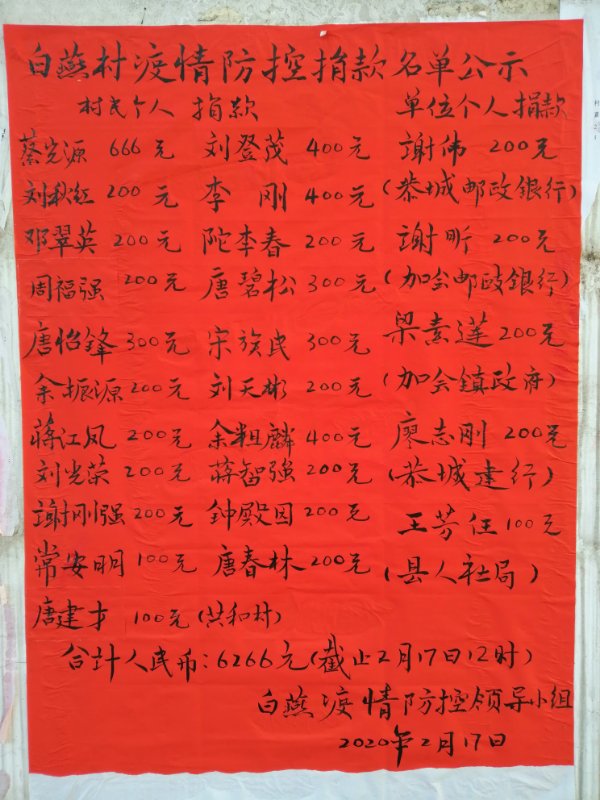 白燕村渡情防控捐款名单公示
村民个人 捐款 单位个人捐款
蔡光源 666元 刘登茂 400元 謝伟 200元
刘秋红 200元 李刚 400元 (恭城邮政银行)
邓翠英 200元 陀李春 200元 謝昕 200元
周福强 200元 唐碧松 300元 (加会邮政銀行)
唐怡鋒 300元 宋族民 300元 梁素莲 200元
余振源 200元 刘天彬 200元 (加会鎮政府)
蒋江凤 200元 余粗麟 400元 廖志刚 200元
刘光荣 200元 蒋智強 200元 (恭城建行)
謝刚强 200元 鈡殿因 200元 王芳任 100元
常安明 100元 唐春林 200元 (县人社局)
唐建才 100元 (共和村)
合计人民币:6266元(截止2月17日12时)
白燕渡情防控领导小组
2020年2月17日